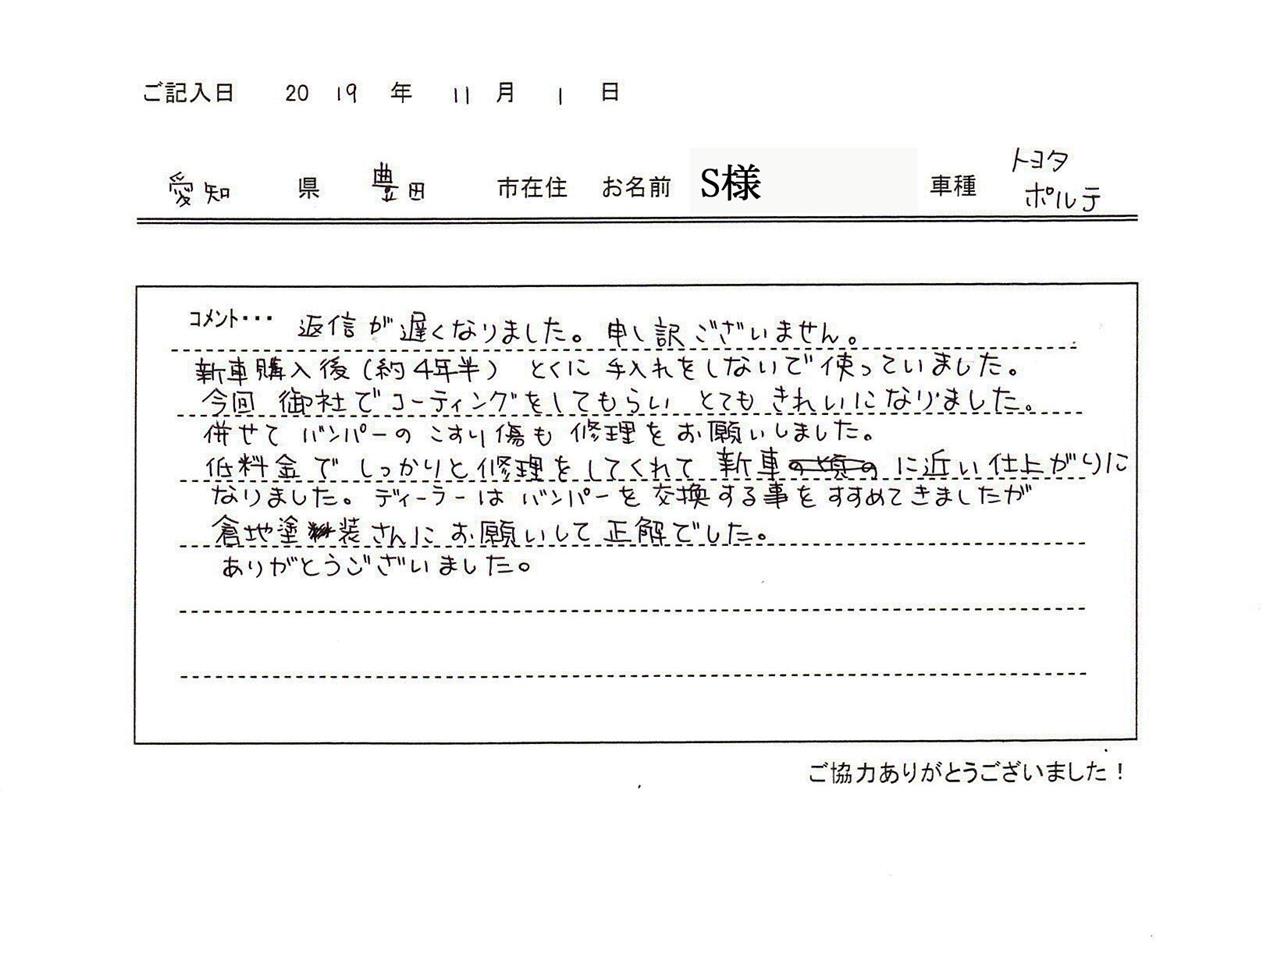 ご記入日 2019年11月1日
愛知県 豊田市在住 お名前 S様 車種 トヨタ ポルテ
コメント・・・ 返信が遅くなりました。申し訳ございません。
新車購入後(約4年半) とくに手入れをしないで使っていました。
今回 御社でコーティングをしてもらい とてもきれいになりました。
併せてバンパーのこすり傷も修理をお願いしました。
低料金でしっかりと修理をしてくれて 新車に近い仕上がりに
なりました。ディーラーはバンパーを交換する事をすすめてきましたが
倉地塗装さんにお願いして正解でした。
ありがとうございました。
ご協力ありがとうございました!